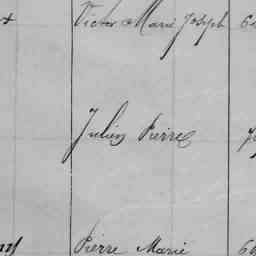 Victor Marie Joseph
Julien Pierre
Pierre Marie